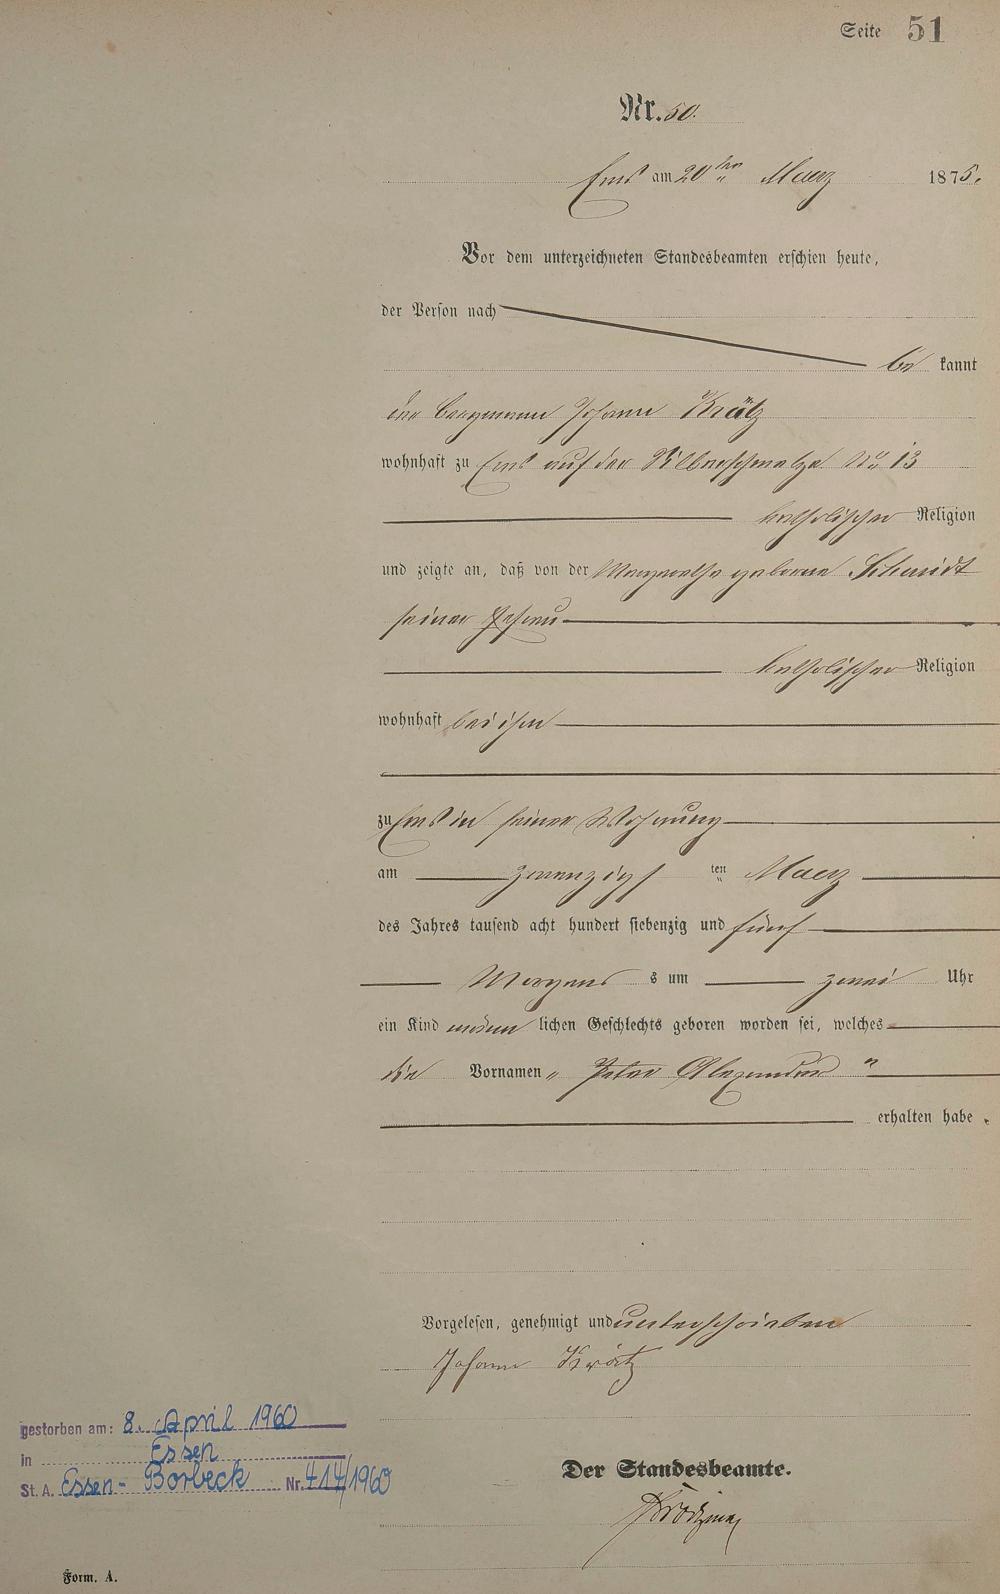 Seite 51
Nr. 50.
Ems am 20ten Maerz 1875.
Vor dem unterzeichneten Standesbeamten erschien heute,
der Person nach
be kannt
der Bergmann Johann Krätz
wohnhaft zu Ems auf der Silberschmelze No 13
katholischer Religion
und zeigte an, daß von der Margarethe geborene Schmidt
seiner Ehefrau
katholischer Religion
wohnhaft bei ihm
zu Ems in seiner Wohnung
am zwanzigs ten Maerz
des Jahres tausend acht hundert siebenzig und fünf
Morgens s um zwei Uhr
ein Kind männ lichen Geschlechts geboren worden sei, welches
die Vornamen „ Peter Alexander "
erhalten habe.
Vorgelesen, genehmigt und unterschrieben
Johann Krätz
gestorben am: 8. April 1960
in Essen
St. A. Essen-Borbeck Nr. /1960
Der Standesbeamte.
Form. A.